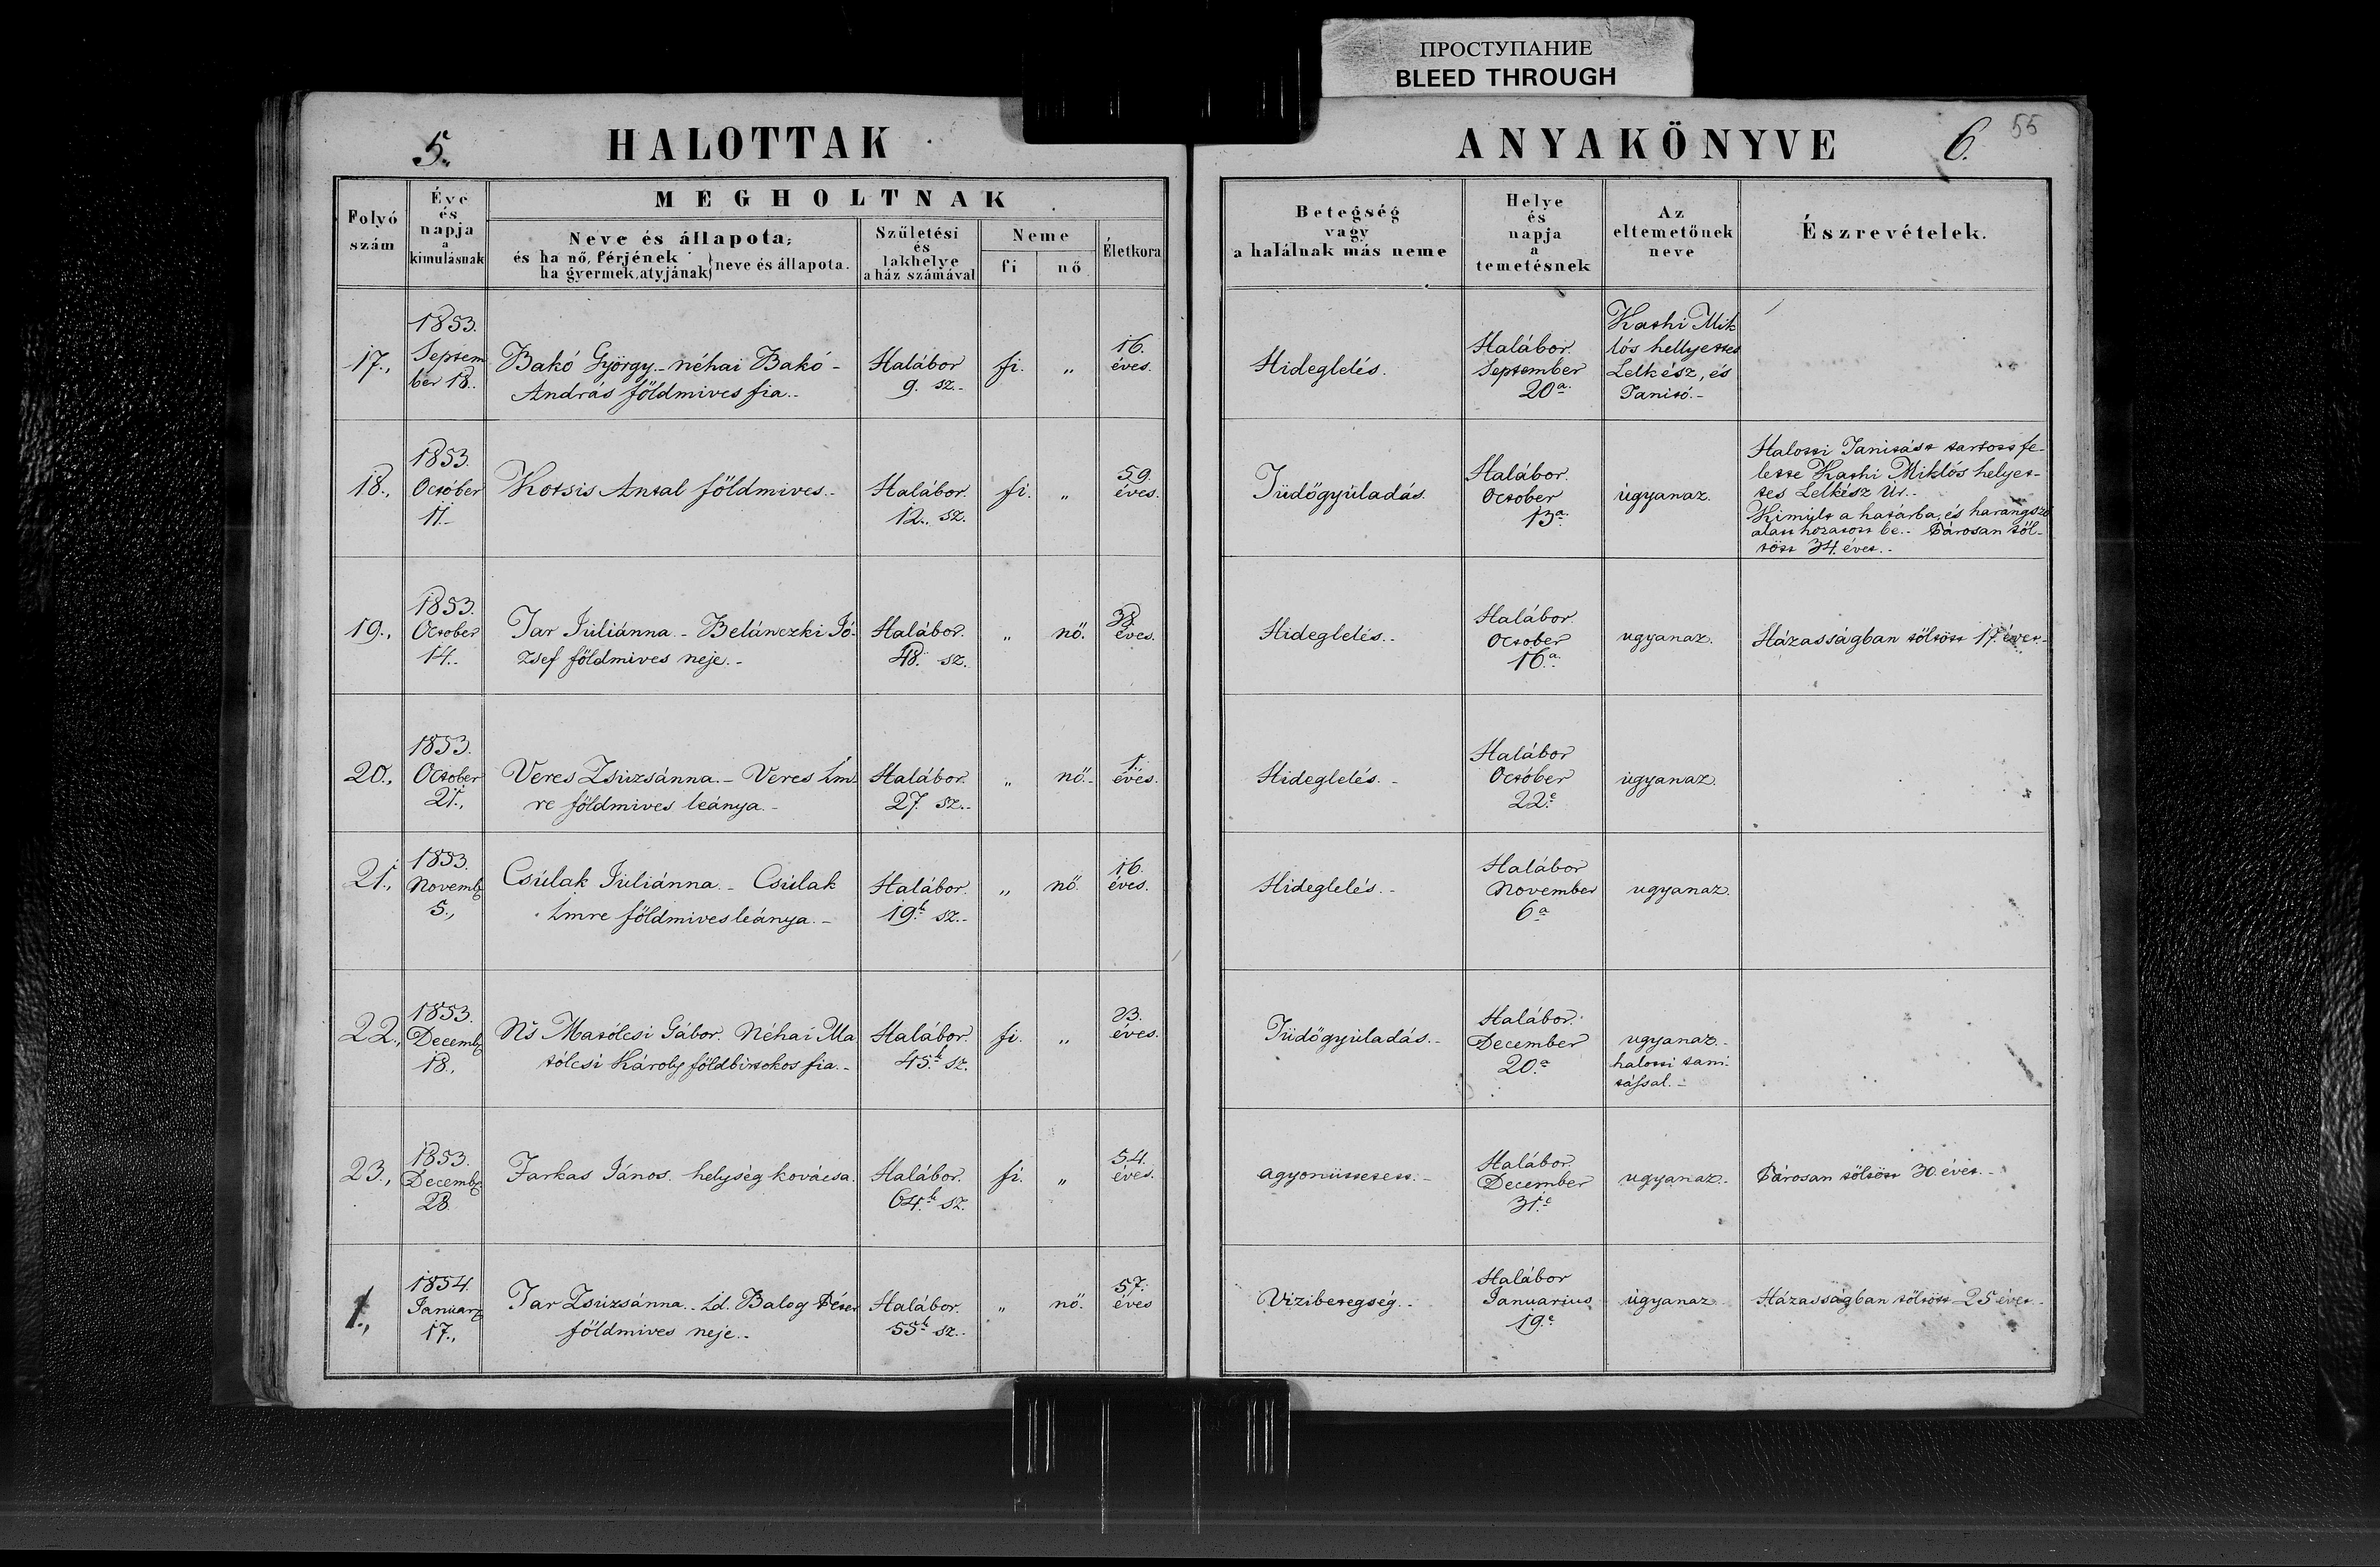 ПРОСТУПАНИЕ
BLEED THROUGH
5. HALOTTAK
ANYAKÖNYVE 6. 55
Folyó szám
Éve és napja a kimulásnak
MEGHOLTNAK
Neve és állapota;
és ha nő, férjének
ha gyermek, atyjának } neve és állapota.
Születési és lakhelye a ház számával
Neme
fi
nő
Életkora
Betegség vagy a halálnak más neme
Helye és napja a temetésnek
Az eltemetőnek neve
Észrevételek.
17.,
1853.
Septem
ber 18.
Bakó György. - néhai Bakó -
András földmives fia. -
Halábor
9. sz. -
fi.
„
16.
éves.
Hideglelés.
Halábor.
September
20a.
Kathi Mik
lós hellyettes
Lelkész, és
Tanitó. -
18.,
1853.
October
11. -
Kotsis Antal földmives. -
Halábor.
12. sz.
fi.
„
59.
éves.
Tüdőgyúladás.
Halábor.
October
13a.
ugyanaz.
Halotti Tanitást tartott fe-
lette Kathi Miklós helyet-
tes Lelkész Úr. -
Kimúlt a határba, és harangszó
alatt hozatott be. - Párosan töl-
tött 34. évet. -
19.,
1853.
October
14. -
Tar Juliánna. - Belánczki Jó-
zsef földmives neje. -
Halábor.
48. sz.
„
nő.
38.
éves.
Hideglelés. -
Halábor.
October
16.a
ugyanaz.
Házasságban töltött 17. évet. -
20.,
1853.
October
21.,
Veres Zsuzsánna. - Veres Im
re földmives leánya. -
Halábor.
27. sz. -
„
nő. -
1.
éves.
Hideglelés. -
Halábor
October
22.e
ugyanaz.
21.,
1853.
Novemb
5.,
Csúlak Juliánna. - Csúlak
Imre földmives leánya. -
Halábor.
19.k sz. -
„
nő.
16.
éves.
Hideglelés. -
Halábor
November
6a
ugyanaz.
22.,
1853.
Decemb
18.,
Ns Matólcsi Gábor. Néhai Ma
tólcsi Károly földbirtokos fia. -
Halábor.
45.k sz.
fi.
„
23.
éves.
Tüdőgyúladás. -
Halábor.
December
20.a
ugyanaz. -
halotti tani-
tással. -
23.,
1853.
Decemb
28.
Farkas János. helység kovácsa.
Halábor.
64.k sz.
fi.
„
54.
éves.
agyonüttetett. -
Halábor.
December
31.e
ugyanaz. -
Párosan töltött 30. évet. -
1.,
1854.
Januar
17.,
Tar Zsúzsánna. - Id. Balog Péter
földmives neje. -
Halábor.
55k sz. -
„
nő.
57.
éves
Vizibetegség. -
Halábor
Januarius
19.e
ugyanaz.
Házasságban töltött 25 évet. -